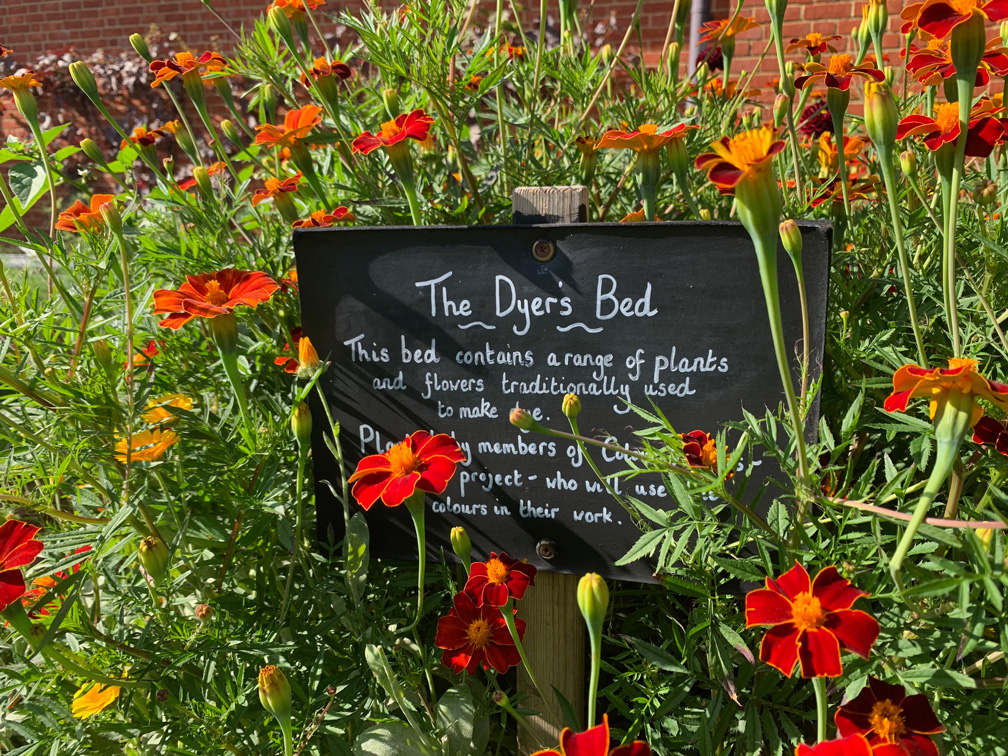 The Dyer's Bed
This bed contains a range of plants
and flowers traditionally used
to make
by members of
project - who will use
colours in their work.